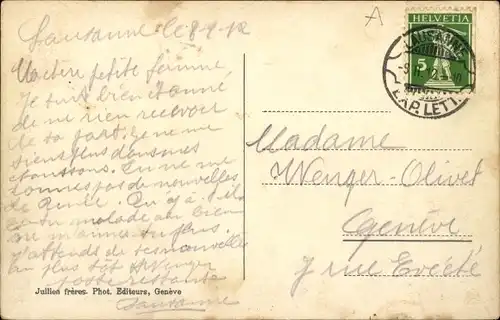 Lausanne le 8-9-12
Ma chère petite femme
Je suis bien étonné
de ne rien recevoir
de ta part. Je ne me
tiens plus dans mes
chaussons. Tu ne me
donnes pas de nouvelles
de
Qu'y a-t-il
es tu malade ou bien
ne m'aimes tu plus.
J'attends de tes nouvelles
au plus tôt Wenger
poste restante
Lausanne
Jullien frères. Phot. Editeurs, Genève
A
HELVETIA
5
LAUSANNE
EXP. LETT.
Madame
Wenger-Olivet
Genève
7 rue Evêché